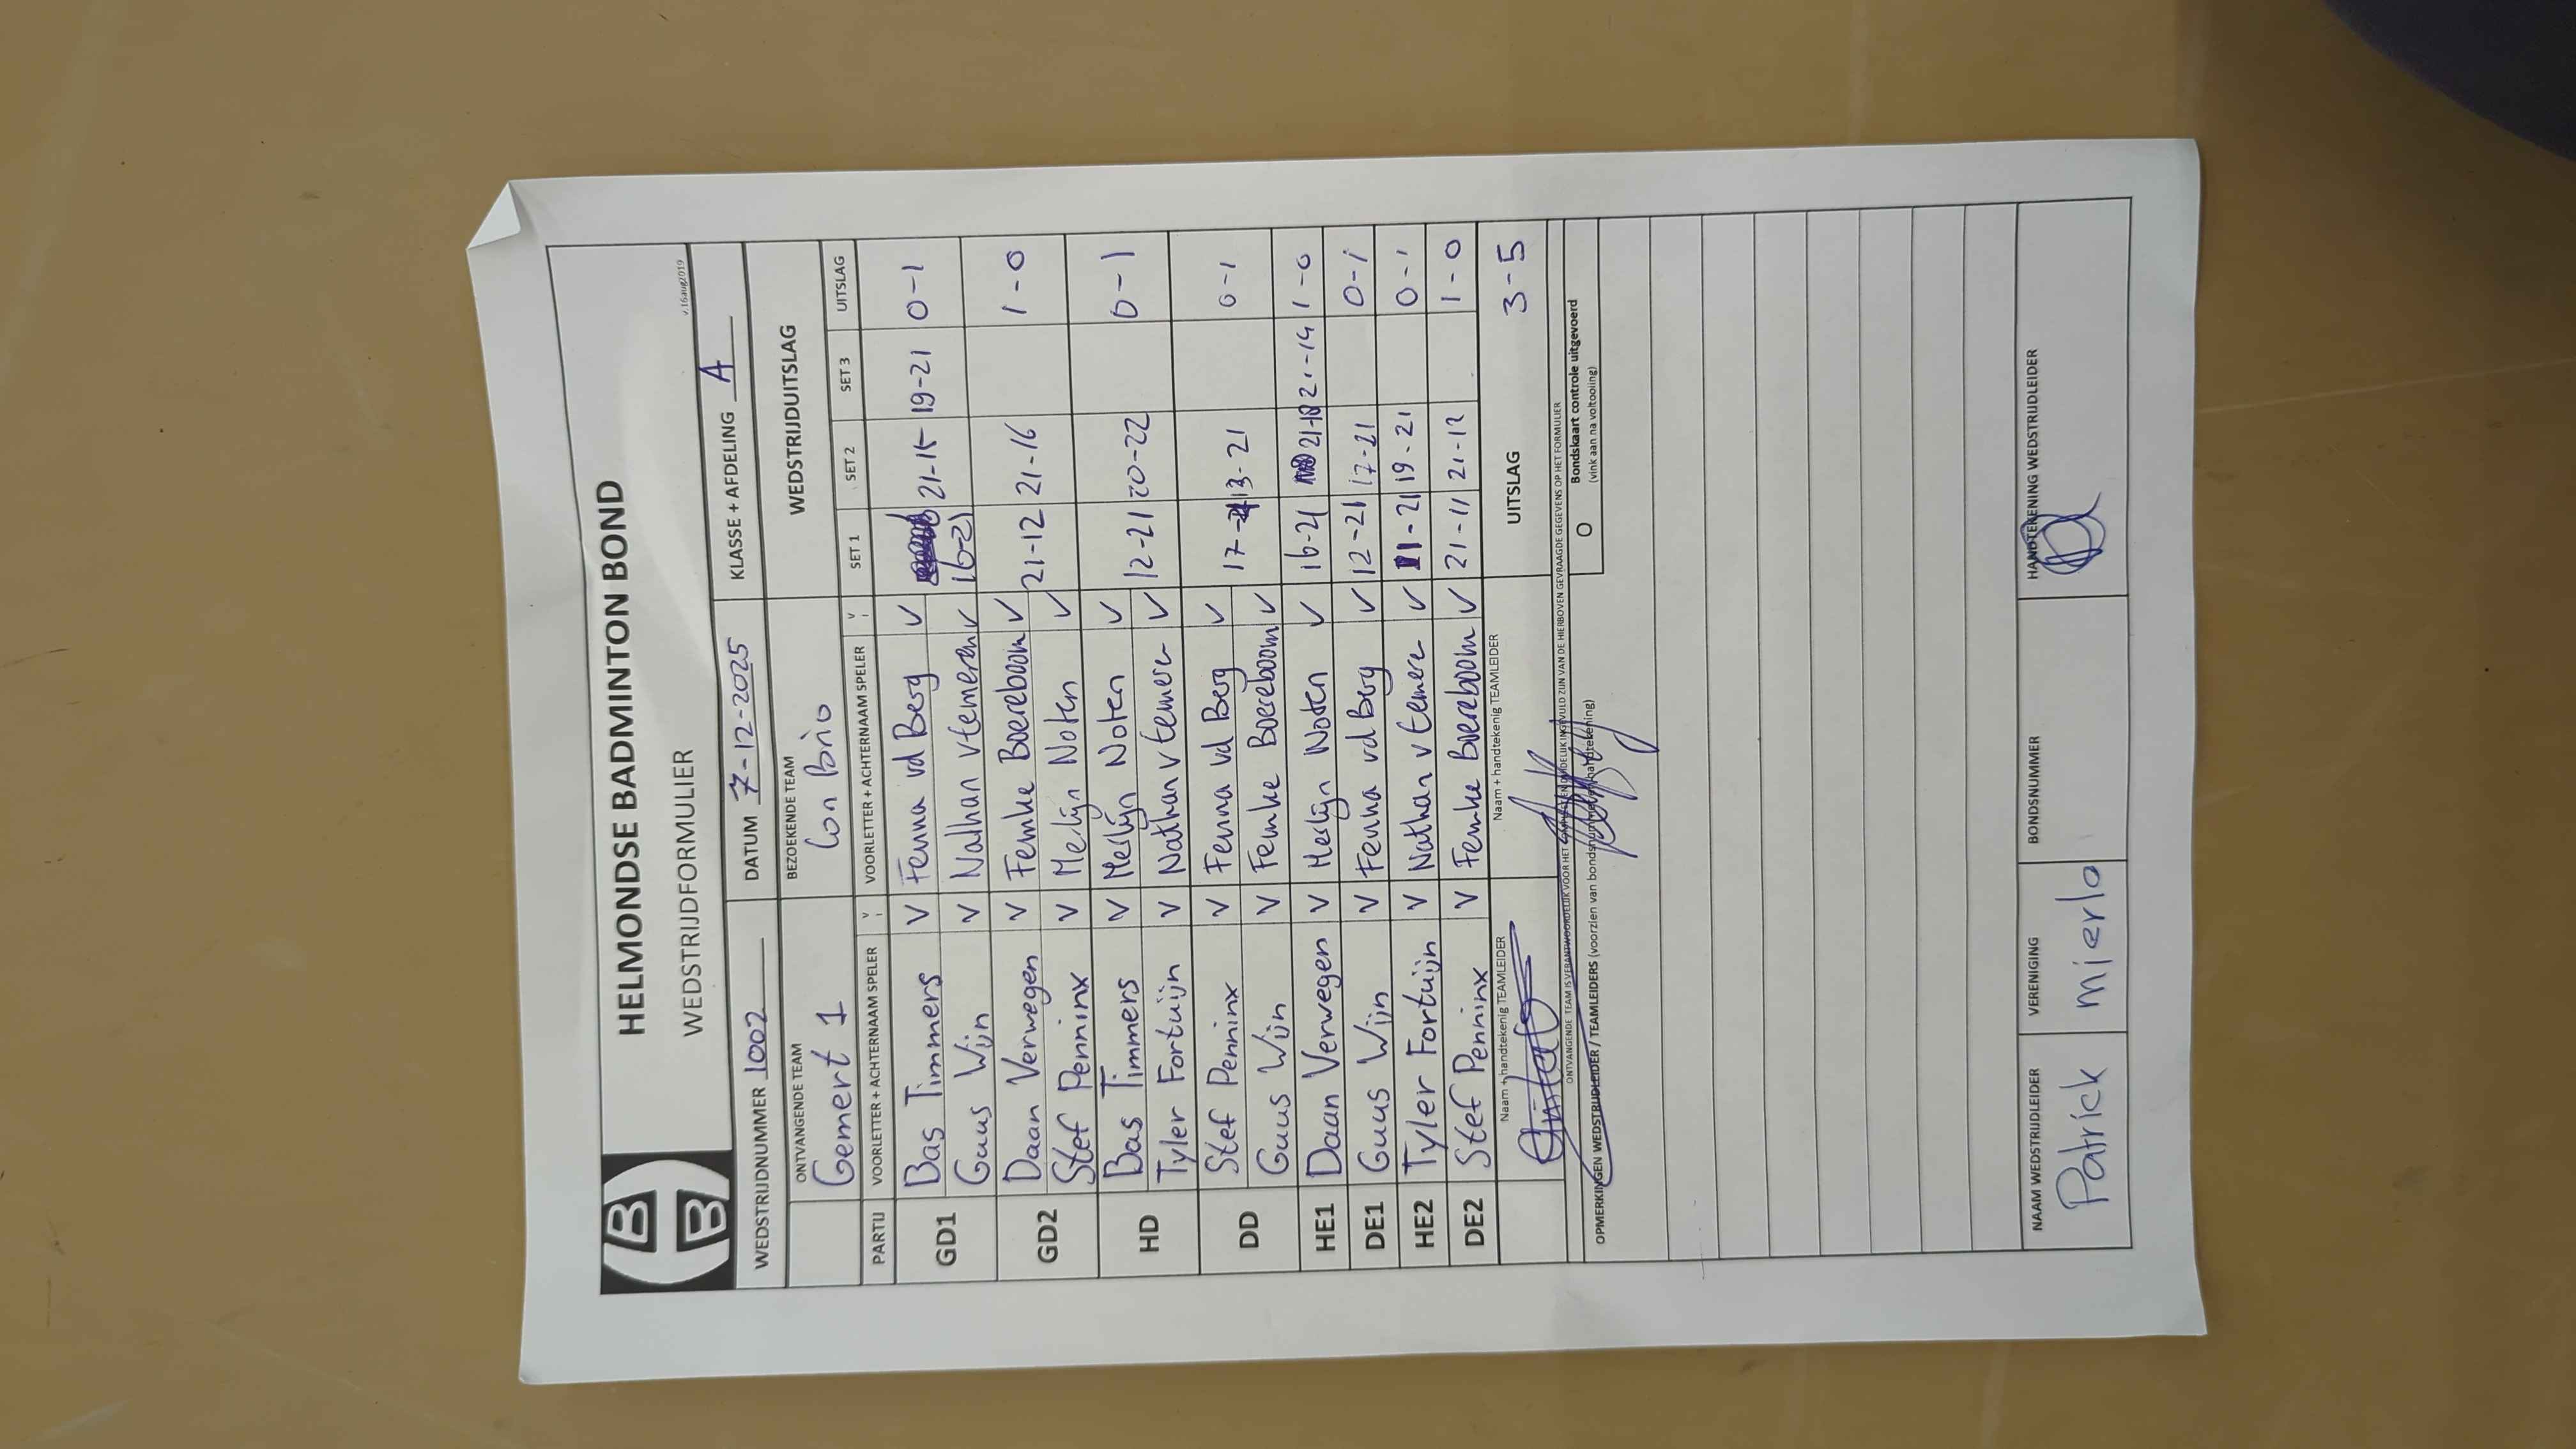 HELMONDSE BADMINTON BOND
WEDSTRIJDFORMULIER
v.16aug2019
WEDSTRIJDNUMMER 1002 DATUM 7-12-2025 KLASSE + AFDELING A
ONTVANGENDE TEAM BEZOEKENDE TEAM WEDSTRIJDUITSLAG
Gemert 1 Con Brio
PARTIJ VOORLETTER + ACHTERNAAM SPELER V VOORLETTER + ACHTERNAAM SPELER V SET 1 SET 2 SET 3 UITSLAG
GD1 Bas Timmers V Fenna vd Berg V 21-15 19-21 0-1
Guus Wijn V Nathan v V 16-21
GD2 Daan Verwegen V Femke Boereboom V 21-12 21-16 1-0
Stef Penninx V Merlijn Noten V
HD Bas Timmers V Merlijn Noten V 12-21 20-22 0-1
Tyler Fortuijn V Nathan v V
DD Stef Penninx V Fenna vd Berg V 17- 13-21 0-1
Guus Wijn V Femke Boereboom V
HE1 Daan Verwegen V Merlijn Noten V 16-21 21-19 1-0
DE1 Guus Wijn V Fenna vd Berg V 12-21 17-21 0-1
HE2 Tyler Fortuijn V Nathan v V 11-21 19-21 0-1
DE2 Stef Penninx V Femke Boereboom V 21-11 21-12 1-0
Naam + handtekenig TEAMLEIDER Naam + handtekenig TEAMLEIDER UITSLAG 3-5
ONTVANGENDE TEAM IS VERANTWOORDELIJK VOOR HET VULD ZIJN VAN DE HIERBOVEN GEVRAAGDE GEGEVENS OP HET FORMULIER
OPMERKINGEN WEDSTRIJDLEIDER / TEAMLEIDERS (voorzien van bondsnummer handtekening)
O Bondskaart controle uitgevoerd
(vink aan na voltooiing)
NAAM WEDSTRIJDLEIDER VERENIGING BONDSNUMMER HANDTEKENING WEDSTRIJDLEIDER
Patrick mierlo